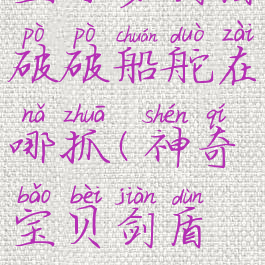 pò pò chuán duò zài
破破船舵在
nǎ zhuā shén qí
哪抓(神奇
bǎo bèi jiàn dùn
宝贝剑盾